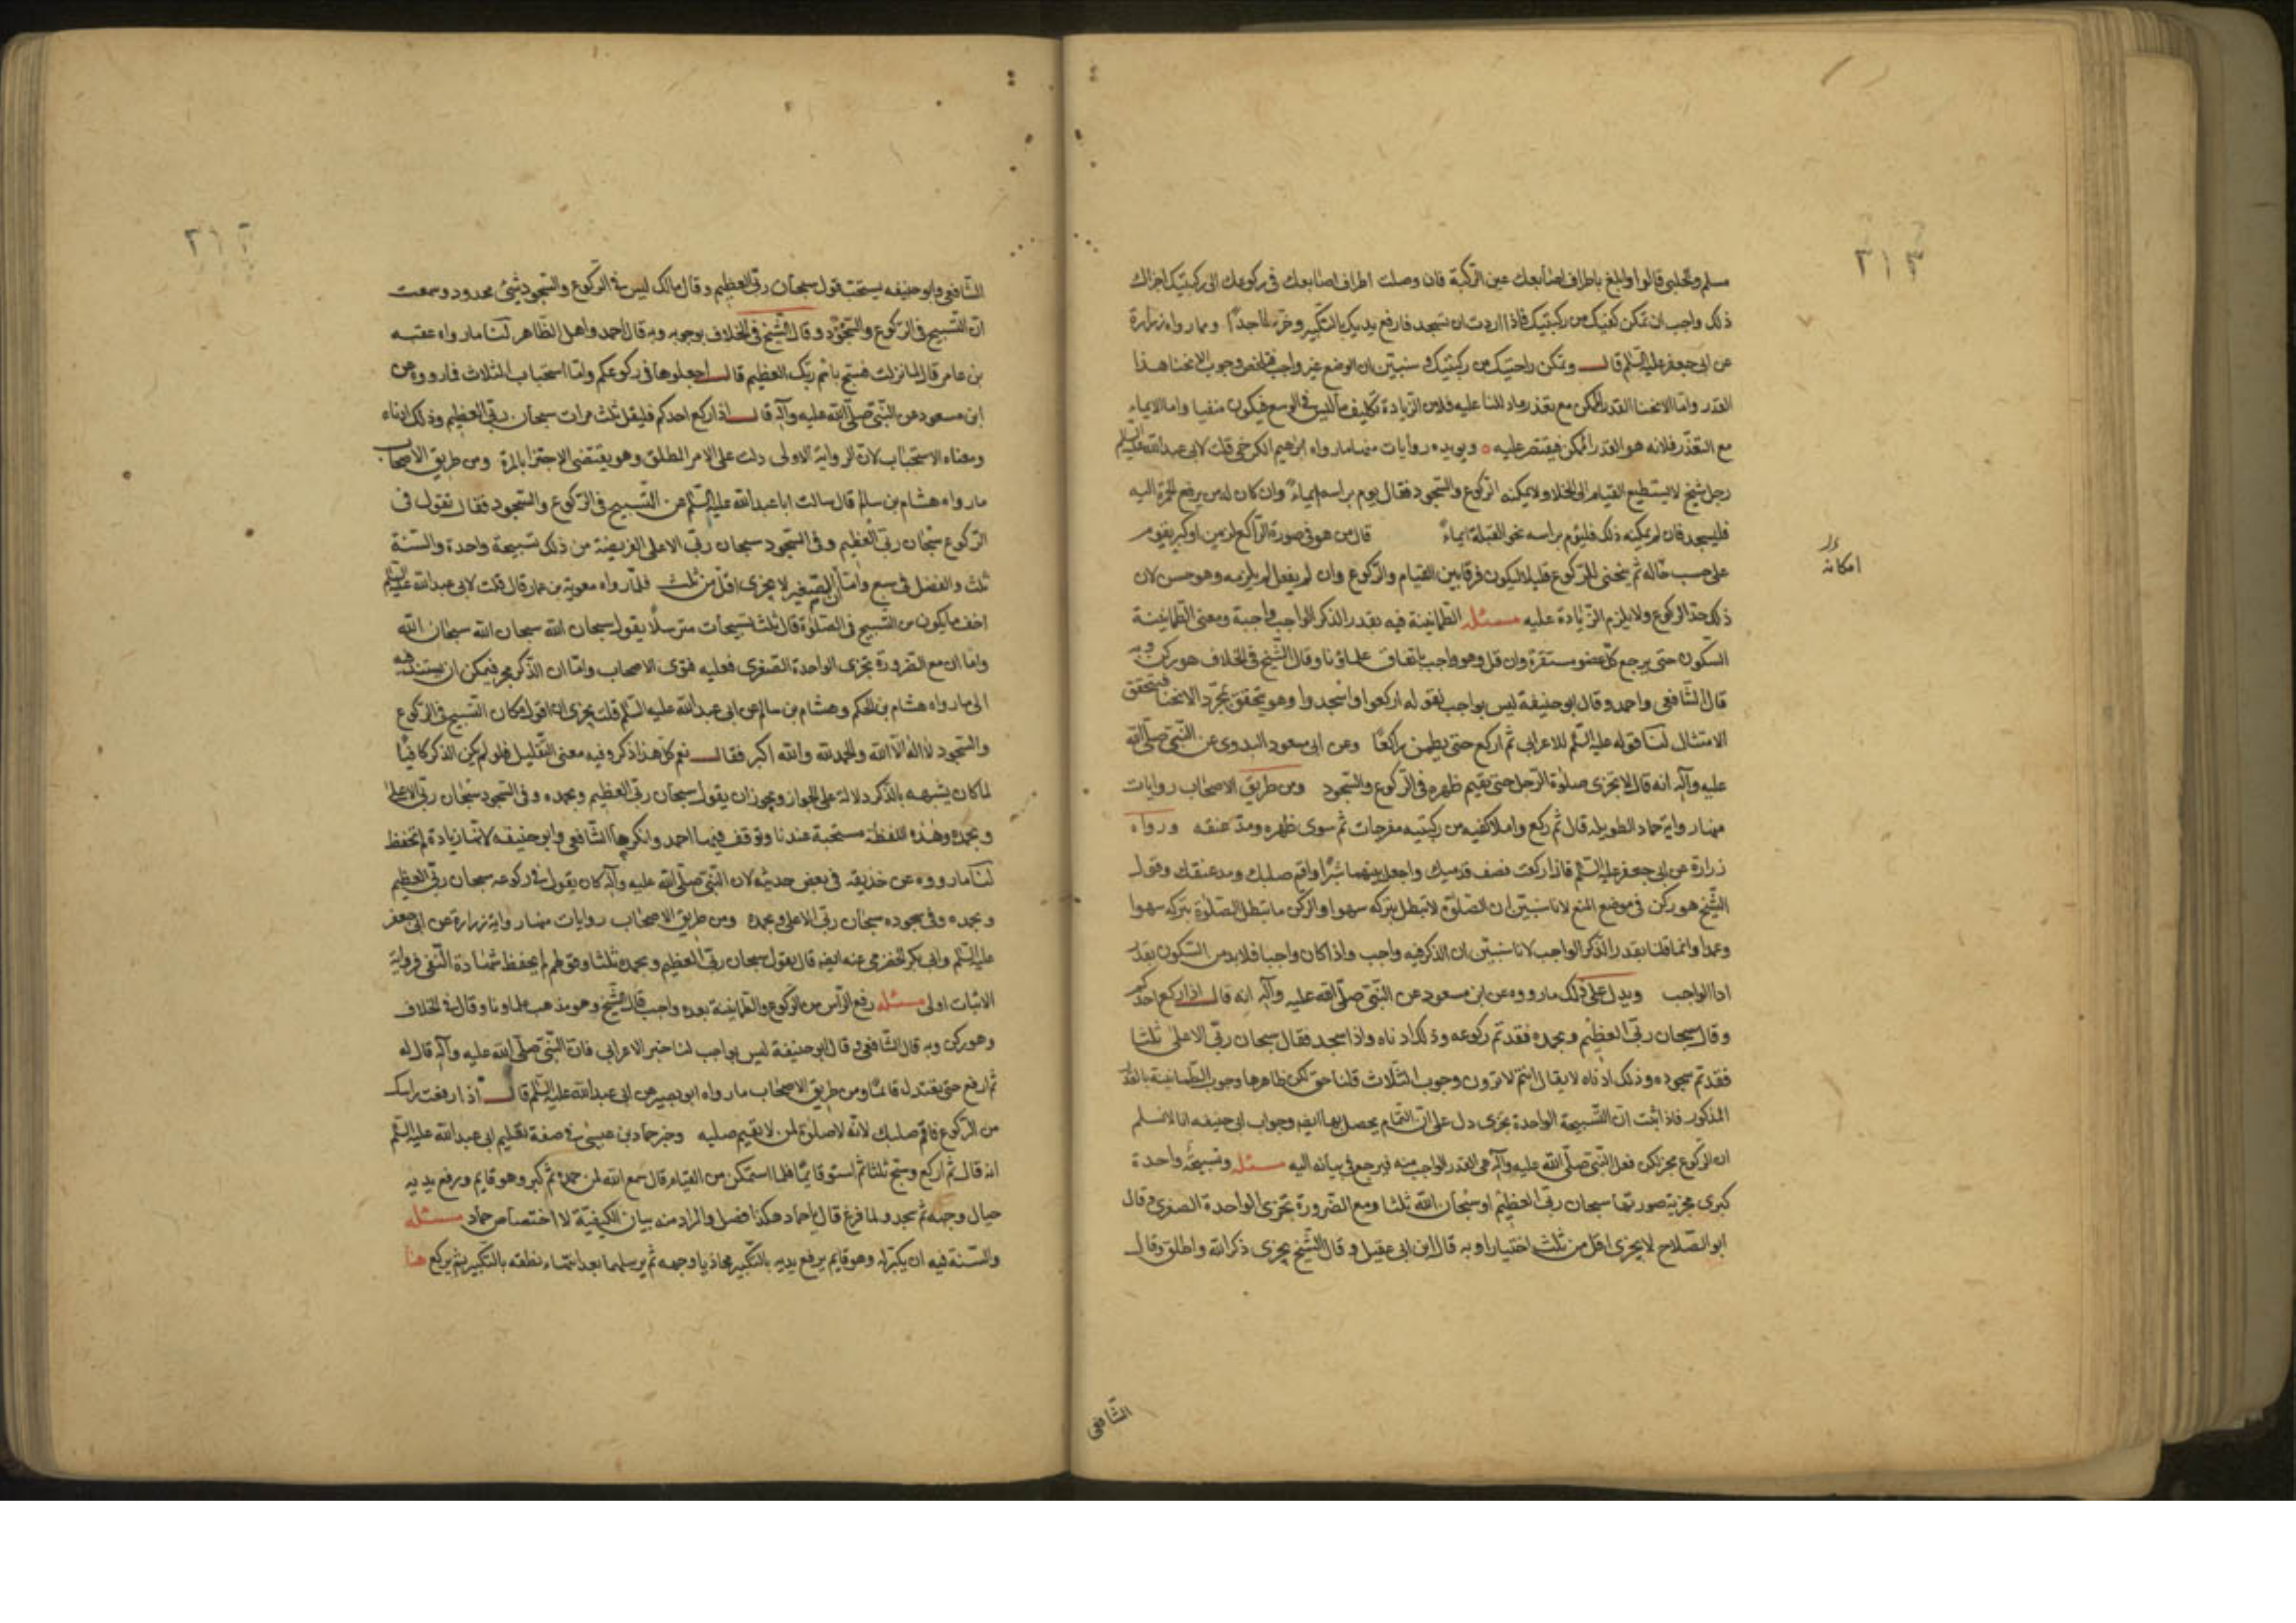 ٢١٣
مسلم والحلبى قالوا وابلغ باطراف اصابعك عين الركبة فان وصلت اطراف اصابعك فى ركوعك الى ركبتيك اجزاك
ذلك واجب ان تمكن كفيك من ركبتيك فاذا اردت ان تسجد فارفع يديك بالتكبير وخر ساجدا وما رواه زرارة
عن ابى جعفر عليه السلم قال وتمكن راحتيك من ركبتيك وسنبين ان الوضع غير واجب وجوب الانحنا هذا
القدر واما الانحنا القدر الممكن مع تعذر عليه فلان الزيادة تكليف ما ليس فى الوسع فيكون منفيا واما الايماء
مع التعذر فلانه هو القدر الممكن فيقتصر عليه ويويده روايات منها ما رواه ابرهيم الكرخى قلت لابى عبد الله عليه السلم
رجل شيخ لا يستطيع القيام الى الخلا ولا يمكنه الركوع والسجود فقال يوم براسه ايماء وان كان له من يرفع الخمرة اليه
فليسجد فان لم يمكنه ذلك فليوم براسه نحو القبلة ايماء قال من هو فى صورة الراكع لزمن او كبر يقوم
امكانه
على حسب حاله ثم ينحنى للركوع قليلا ليكون فرقا بين القيام والركوع وان لم يفعل لم يلزمه وهو حسن لان
ذلك حد الركوع ولا يلزم الزيادة عليه مسئله الطمانينة فيه بقدر الذكر الواجب واجبة ومعنى الطمانينة
السكون حتى يرجع كل عضو مستقره وان قل وهو واجب باتفاق علماؤنا وقال الشيخ فى الخلاف هو ركن وبه
قال الشافعى واحمد وقال ابو حنيفة ليس بواجب لقوله اركعوا واسجدوا وهو يتحقق بمجرد الانحنا فيتحقق
الامتثال لنا قوله عليه السلم للاعرابى ثم اركع حتى يطمئن راكعا وعن ابى مسعود البدوى عن النبى صلى الله
عليه وآله انه قال لا تجزى صلوة الرجل حتى يقيم ظهره فى الركوع والسجود ومن طريق الاصحاب روايات
منها رواية حماد الطويلة قال ثم ركع واملا كفيه من ركبتيه مفرجات ثم سوى ظهره ومد عنقه ورواه
زرارة عن ابى جعفر عليه السلم فاذا ركعت فصف قدميك واجعل بينهما شبرا واقم صلبك ومد عنقك وقول
الشيخ هو ركن فى موضع المنع لانا سنبين ان الصلوة لا تبطل بتركه سهوا والركن ما تبطل الصلوة بتركه سهوا
وعمدا وانما قلنا بقدر الذكر الواجب لانا سنبين ان الذكر فيه واجب واذا كان واجبا فلا بد من السكون بقدر
اداالواجب ويدل على ذلك ما رووه عن ابن مسعود عن النبى صلى الله عليه وآله انه قال اذا ركع احدكم
وقال سبحان ربى العظيم وبحمده فقد تم ركوعه وذلك ادناه واذا سجد فقال سبحان ربى الاعلى ثلثا
فقد تم سجوده وذلك ادناه لا يقال انتم لا ترون وجوب الثلاث قلنا حق لكن ظاهرها وجوب الطمانينة بالقدر
المذكور فاذا ثبت ان التسبيحة الواحدة تجزى دل على ان التمام يحصل بها ايضا وجواب ابى حنيفه انا لا نسلم
ان الركوع مجز لكن فعل النبى صلى الله عليه وآله هى القدر الواجب منه فيرجع فى بيانه اليه مسئله وتسبيحة واحدة
كبرى مجزية صورتها سبحان ربى العظيم او سبحان الله ثلثا ومع الضرورة تجزى الواحدة الصغرى وقال
ابو الصلاح لا يجزى اقل من ثلث اختيارا وبه قال ابن ابى عقيل وقال الشيخ يجزى ذكر الله واطلق وقال
الشافعى
٢١٤
الشافعى وابو حنيفه يستحب قول سبحان ربى العظيم وقال مالك ليس فى الركوع والسجود شئ محدود وسمعت
ان التسبيح فى الركوع والسجود وقال الشيخ فى الخلاف بوجوبه وبه قال احمد واهل الظاهر لنا ما رواه عقبه
بن عامر قال لما نزلت فسبح باسم ربك العظيم قال اجعلوها فى ركوعكم واما استحباب الثلاث فما رووه عن
ابن مسعود عن النبى صلى الله عليه وآله قال اذا ركع احدكم فليقل ثلث مرات سبحان ربى العظيم وذلك ادناه
ومعناه الاستحباب لان الرواية الاولى دلت على الامر المطلق وهو يقتضى الاجتزا بالمرة ومن طريق الاصحاب
ما رواه هشام بن سالم قال سالت ابا عبد الله عليه السلم عن التسبيح فى الركوع والسجود فقال تقول فى
الركوع سبحان ربى العظيم وفى السجود سبحان ربى الاعلى الفريضة من ذلك تسبيحة واحدة والسنة
ثلث والفضل فى سبع واما ان الصغير لا يجزى اقل من ثلث فلما رواه معوية بن عمار قال قلت لابى عبد الله عليه السلم
اخف ما يكون من التسبيح فى الصلوة قال ثلث تسبيحات مترسلا يقول سبحان الله سبحان الله سبحان الله
واما ان مع الضرورة تجزى الواحدة الصغرى فعليه فتوى الاصحاب واما ان الذكر مجز فيمكن ان يستند فيه
الى ما رواه هشام بن الحكم وهشام بن سالم عن ابى عبد الله عليه السلم قلت يجزى ان اقول مكان التسبيح فى الركوع
والسجود لا اله الا الله والحمد لله والله اكبر فقال نعم كل هذا ذكر وفيه معنى التعليل فلو لم يكن الذكر كافيا
لما كان يشبهه بالذكر دلالة على الجواز ويجوز ان يقول سبحان ربى العظيم وبحمده وفى السجود سبحان ربى الاعلى
وبحمده وهذه اللفظة مستحبة عندنا وتوقف فيها احمد وانكرها الشافعى وابو حنيفه لانها زيادة لم تحفظ
لنا ما رووه عن حذيفه فى بعض حديثه لان النبى صلى الله عليه وآله كان يقول فى ركوعه سبحان ربى العظيم
وبحمده وفى سجوده سبحان ربى الاعلى وبحمده ومن طريق الاصحاب روايات منها رواية زرارة عن ابى جعفر
عليه السلم وابى بكر الحضرمى عنه ايضا قال يقول سبحان ربى العظيم وبحمده ثلثا وقولهم لم يحفظ شهادة النفى فرواية
الاثبات اولى مسئله رفع الراس من الركوع والطمانينة بعده واجب قال الشيخ وهو مذهب علماونا وقال فى الخلاف
وهو ركن وبه قال الشافعى وقال ابو حنيفة ليس بواجب لنا خبر الاعرابى فان النبى صلى الله عليه وآله قال له
ثم ارفع حتى يعتدل قائما ومن طريق الاصحاب ما رواه ابو بصير عن ابى عبد الله عليه السلم قال اذا رفعت راسك
من الركوع فاقم صلبك لانه لا صلوة لمن لا يقيم صلبه وخبر حماد بن عيسى فى صفة تعليم ابى عبد الله عليه السلم
انه قال ثم اركع وسبح ثلثا ثم استو قايما فلما استمكن من القيام قال سمع الله لمن حمده ثم كبر وهو قايم ورفع يديه
حيال وجهه ثم سجد ولما فرغ قال يا حماد هكذا فصل والمراد منه بيان الكيفية لا اختصاص حماد مسئله
والسنة فيه ان يكبر له وهو قايم يرفع يديه بالتكبير محاذيا وجهه ثم يرسلهما بعد انتهاء نطقه بالتكبير ثم يركع هنا